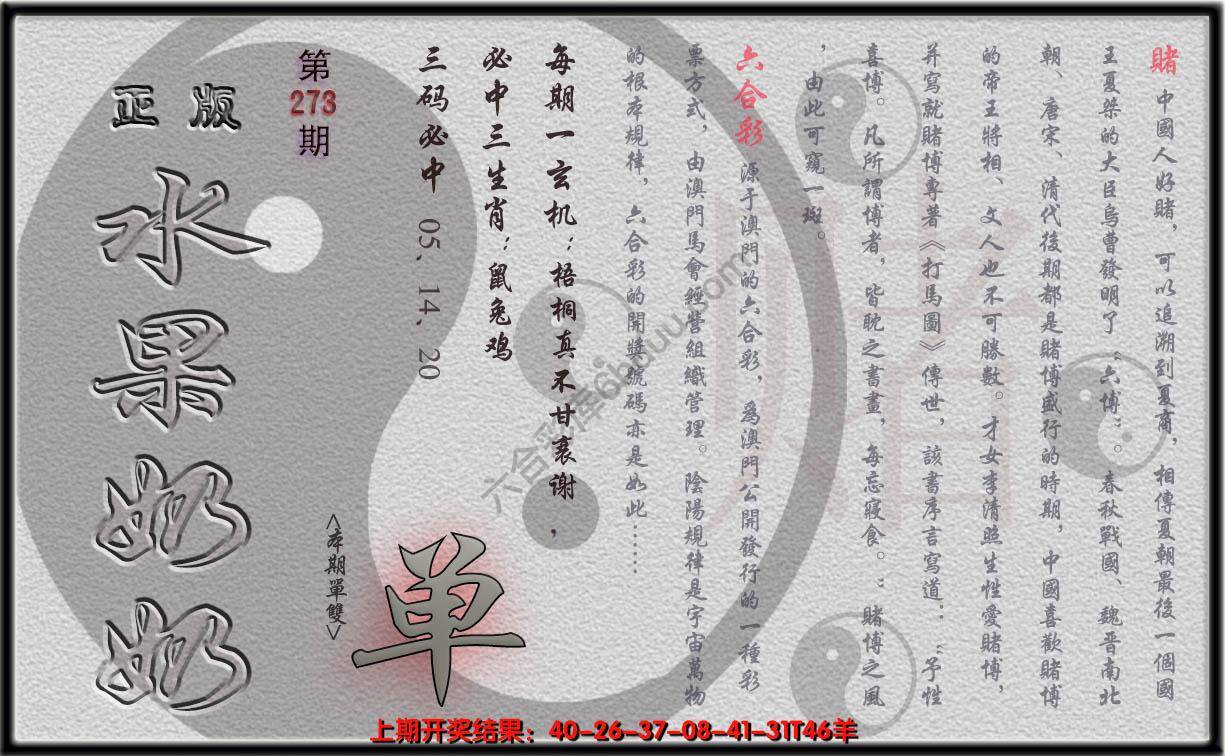 賭 中國人好賭，可以追溯到夏商，相傳夏朝最後一個國
王夏桀的大臣烏曹發明了“六博”。春秋戰國、魏晋南北
朝、唐宋、清代後期都是賭博盛行的時期，中國喜歡賭博
的帝王將相、文人也不可勝數。才女李清照生性愛賭博，
并寫就賭博專著《打馬圖》傳世，該書序言寫道：“予性
喜博。凡所謂博者，皆耽之晝畫，每忘寢食。”賭博之風
，由此可窺一斑。
六合彩 源于澳門的六合彩，爲澳門公開發行的一種彩
票方式，由澳門馬會經營組織管理。陰陽規律是宇宙萬物
的根本規律，六合彩的開獎號碼亦是如此……
每期一玄机：梧桐真不甘衰谢，
必中三生肖：鼠兔鸡
三码必中 05、14、20
第273期
正版
水果奶奶
<本期單雙>
单
六合彩库6hauu.com
上期开奖结果：40-26-37-08-41-31T46羊